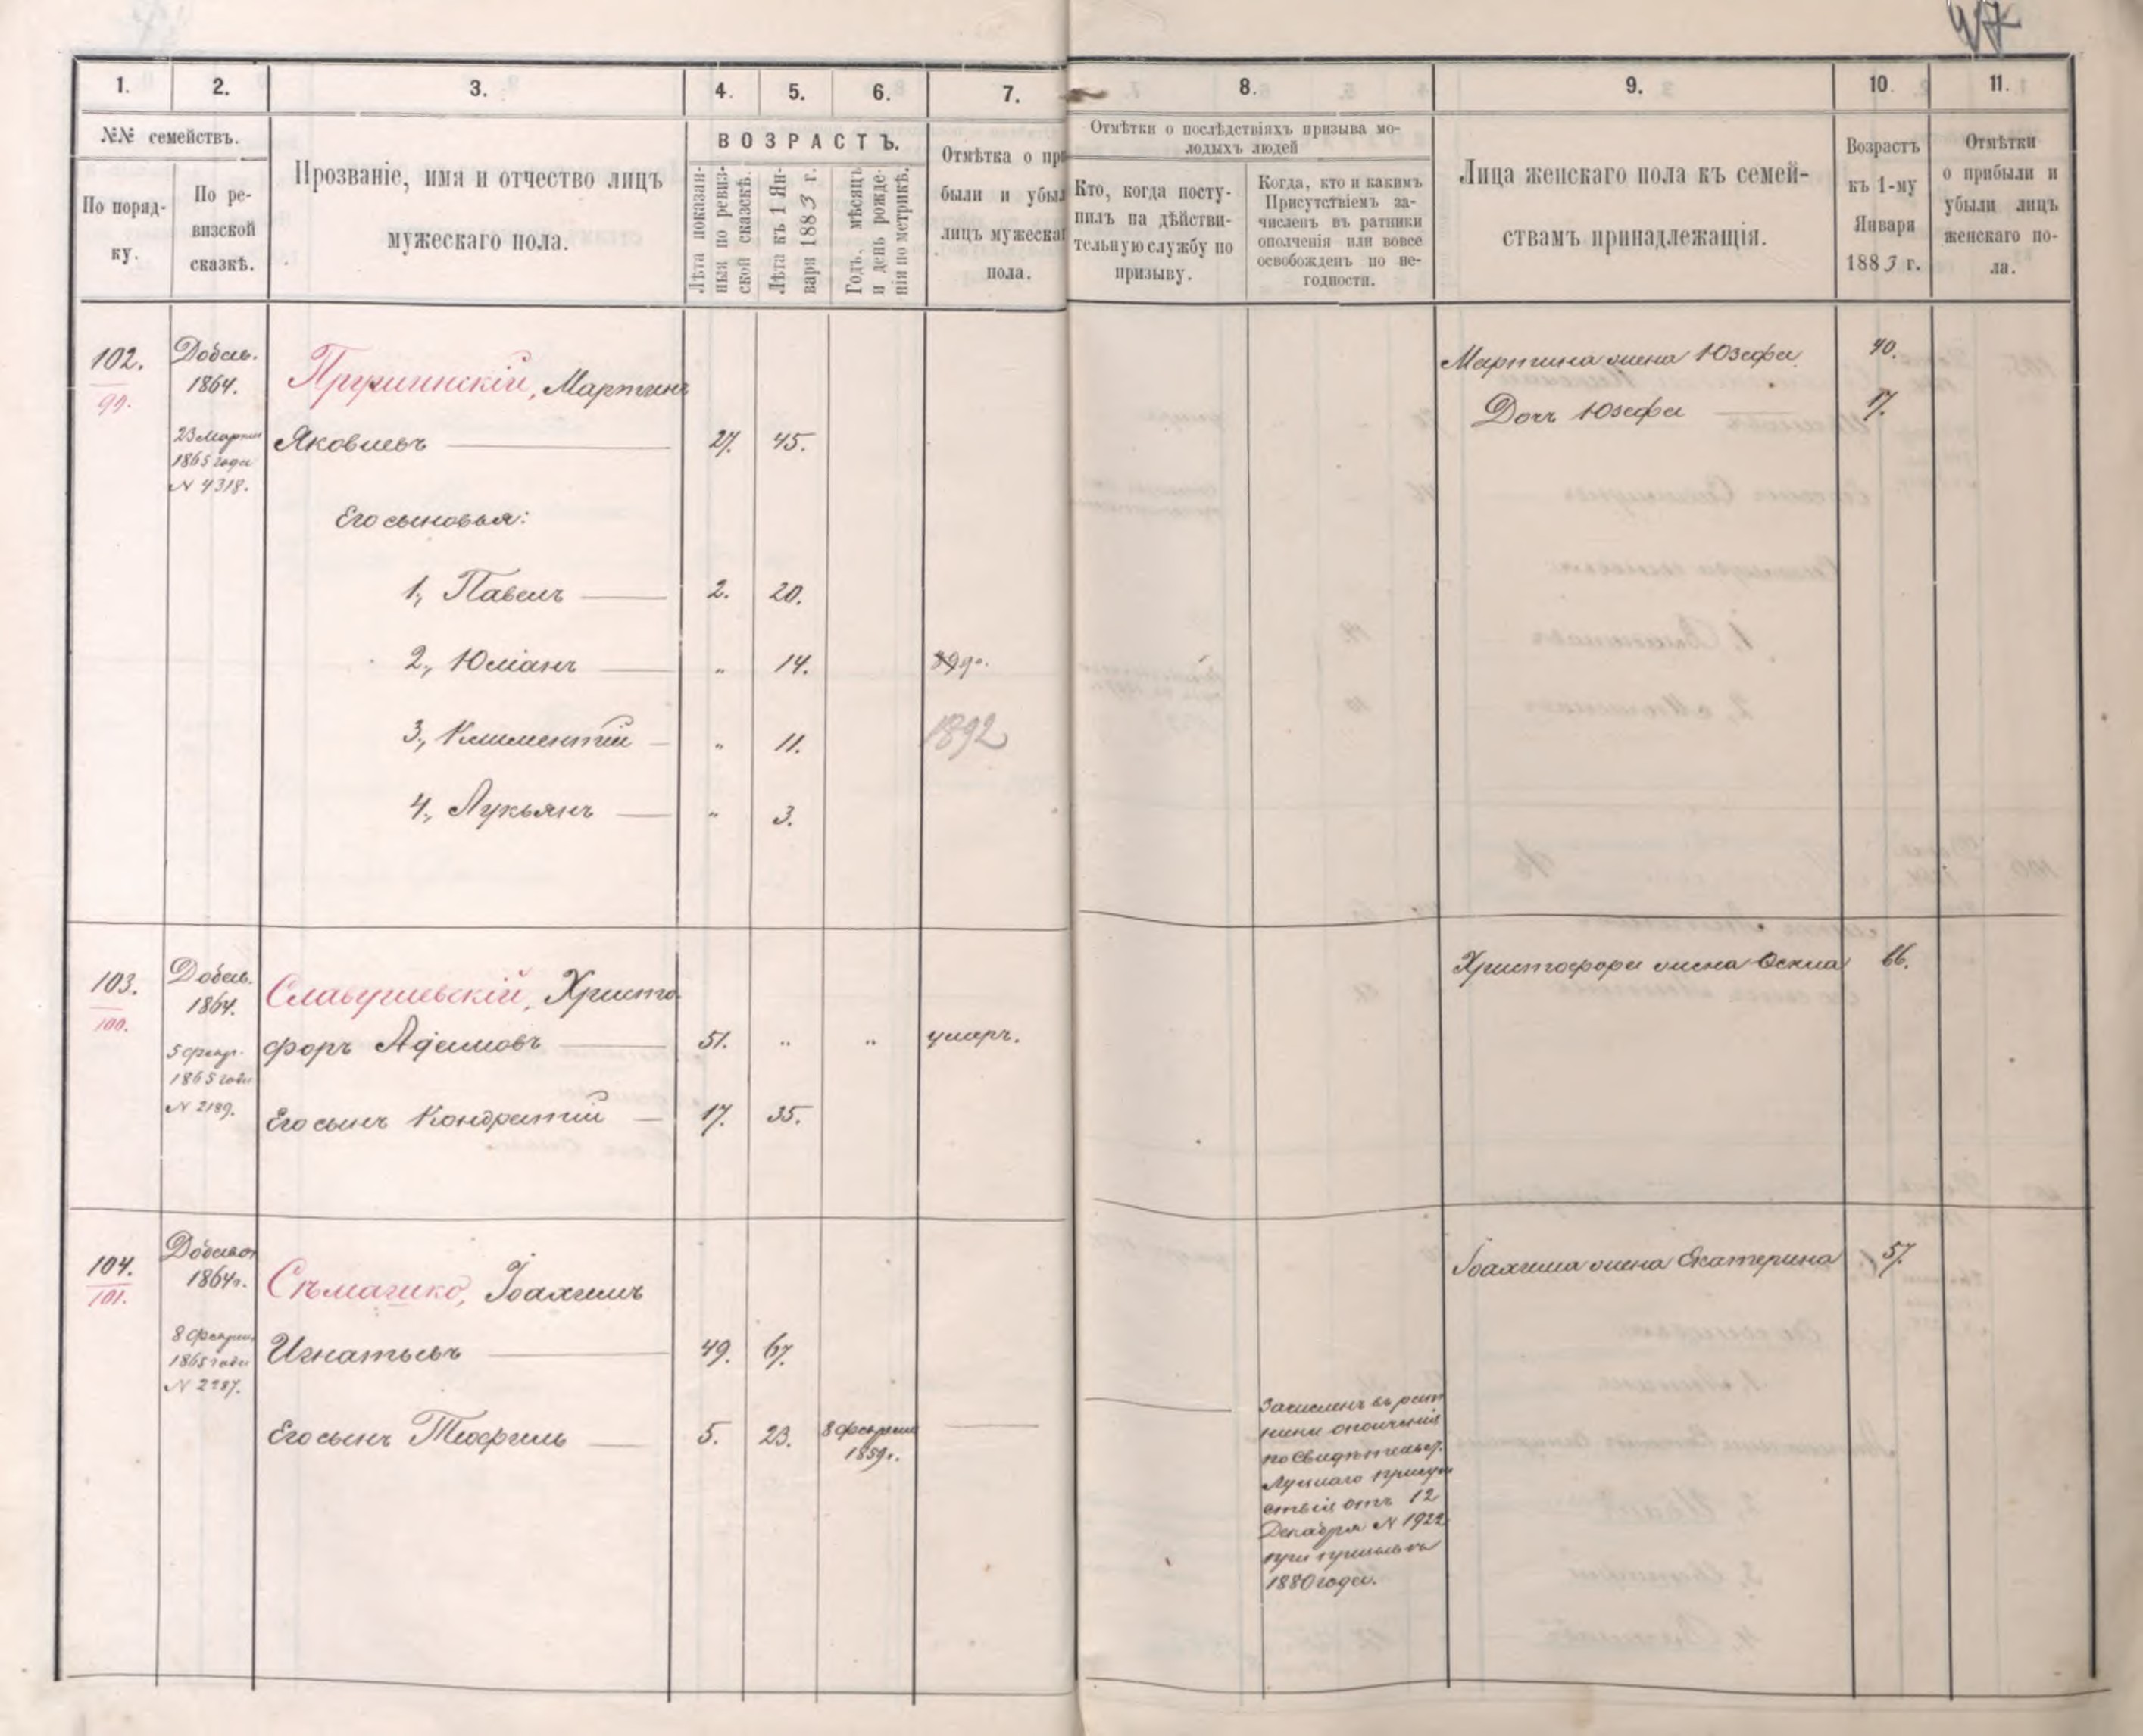 47
1. 2. 3. 4. 5. 6. 7. 8. 9. 10. 11.
№№ семействъ.
По поряд-
ку.
По ре-
визской
сказкѣ.
Прозваніе, имя и отчество лицъ
мужескаго пола.
ВОЗРАСТЪ.
Лѣта показан-
ныя по ревиз-
ской сказкѣ.
Лѣта къ 1 Ян-
варя 1883 г.
Годъ, мѣсяцъ
и день рожде-
нія по метрикѣ.
Отмѣтка о при
были и убыл
лицъ мужескаг
пола.
Отмѣтки о послѣдствіяхъ призыва мо-
лодыхъ людей
Кто, когда посту-
пилъ на дѣйстви-
тельную службу по
призыву.
Когда, кто и какимъ
Присутствіемъ за-
численъ въ ратники
ополченія или вовсе
освобожденъ по не-
годности.
Лица женскаго пола къ семей-
ствамъ принадлежащія.
Возрастъ
къ 1-му
Января
1883 г.
Отмѣтки
о прибыли и
убыли лицъ
женскаго по-
ла.
102.
99.
Добав.
1864.
23 Марта
1865 года
N 4318.
Прушинскій, Мартинъ
Яковлевъ 27. 45.
Его сыновья:
1., Павелъ 2. 20.
2., Юліанъ " 14.
3., Климентій " 11. 1892
4., Лукьянъ " 3.
Мартина жена Юзефа 40.
Дочь Юзефа 17.
103.
100.
Добав.
1864.
5 февр.
1865 года
N 2189.
Славушевскій, Христо-
форъ Адамовъ 51. " " умеръ.
Его сынъ Кондратій 17. 35.
Христофора жена Текла 66.
104.
101.
Добавоч
1864 г.
8 Феврал.
1865 года
N 2287.
Сѣмашко, Іоахимъ
Игнатьевъ 49. 67.
Его сынъ Теофиль 5. 23. 8 февраля
1859 г.
Зачисленъ въ рат
ники ополченія
по свидѣтельст.
Луцкаго присут
ствія отъ 12
Декабря N 1922
при призывѣ
1880 года.
Іоахима жена Екатерина 57.